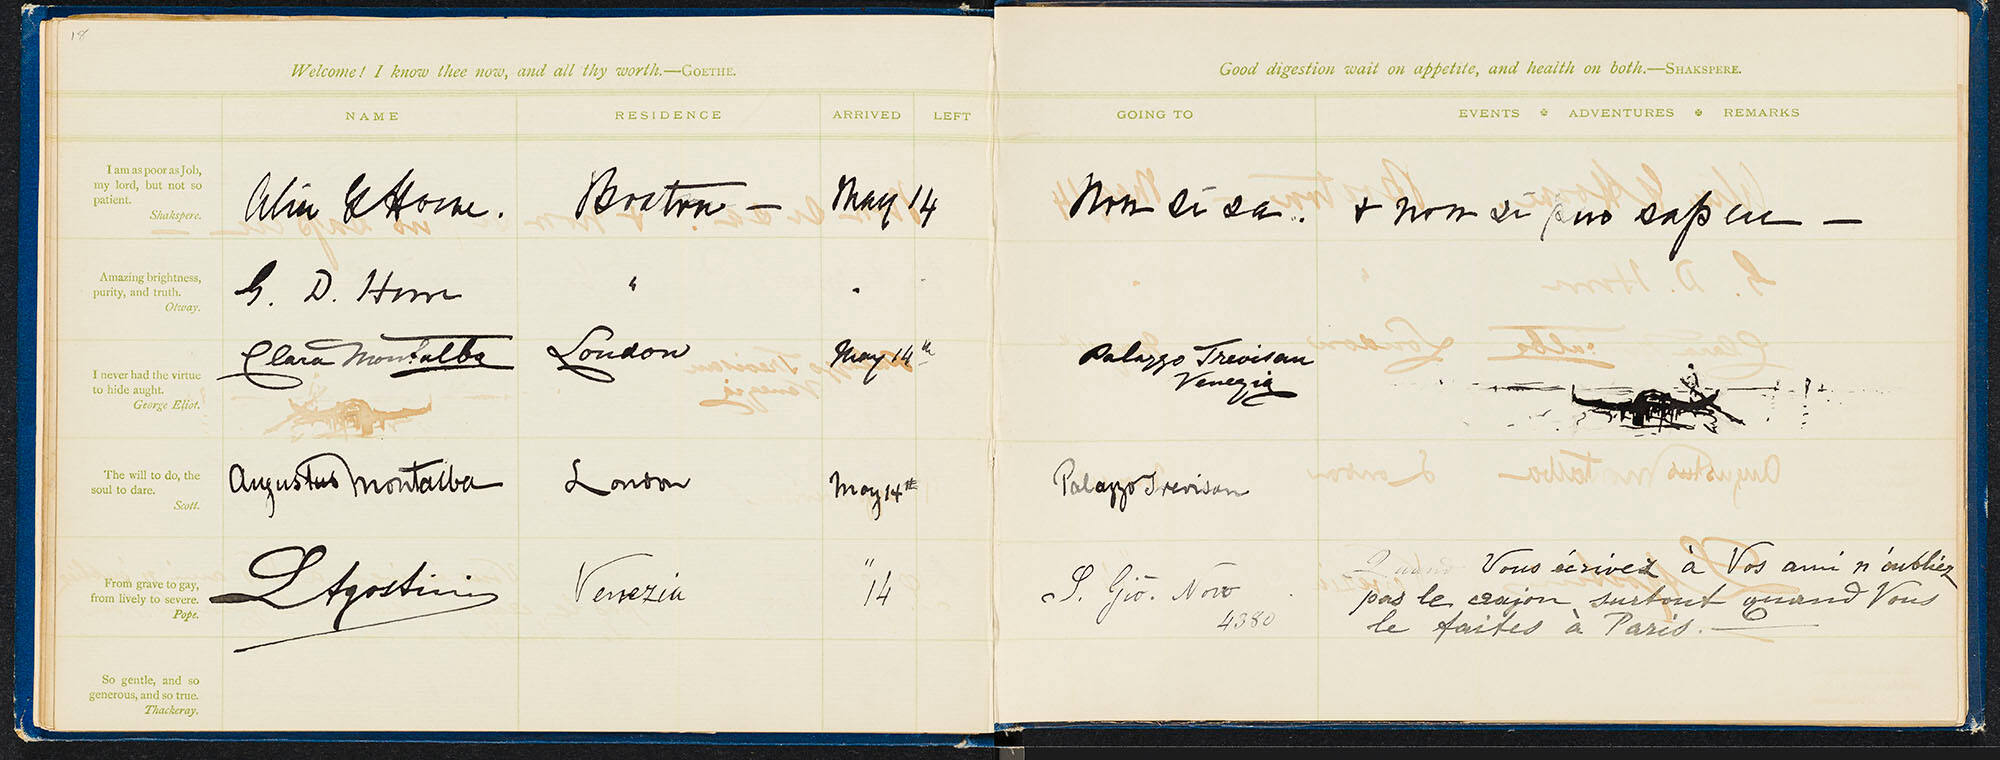 18
Welcome! I know thee now, and all thy worth.—GOETHE.
Good digestion wait on appetite, and health on both.—SHAKSPERE.
NAME RESIDENCE ARRIVED LEFT GOING TO EVENTS ADVENTURES REMARKS
I am as poor as Job,
my lord, but not so
patient.
Shakspere.
Boston — May 14 Non si sa. + non si puo sapere —
Amazing brightness,
purity, and truth.
Otway.
G. D. "
I never had the virtue
to hide aught.
George Eliot.
Clara Montalba London May 14th Palazzo Trevisan
Venezia
The will to do, the
soul to dare.
Scott.
Augustus Montalba London May 14th Palazzo Trevisan
From grave to gay,
from lively to severe.
Pope.
L Agostini Venezia " 14 S. Gio. Novo
4380
Quand Vous écrivez à Vos ami n'oubliez
pas le crajon, surtout quand Vous
le faites à Paris.
So gentle, and so
generous, and so true.
Thackeray.